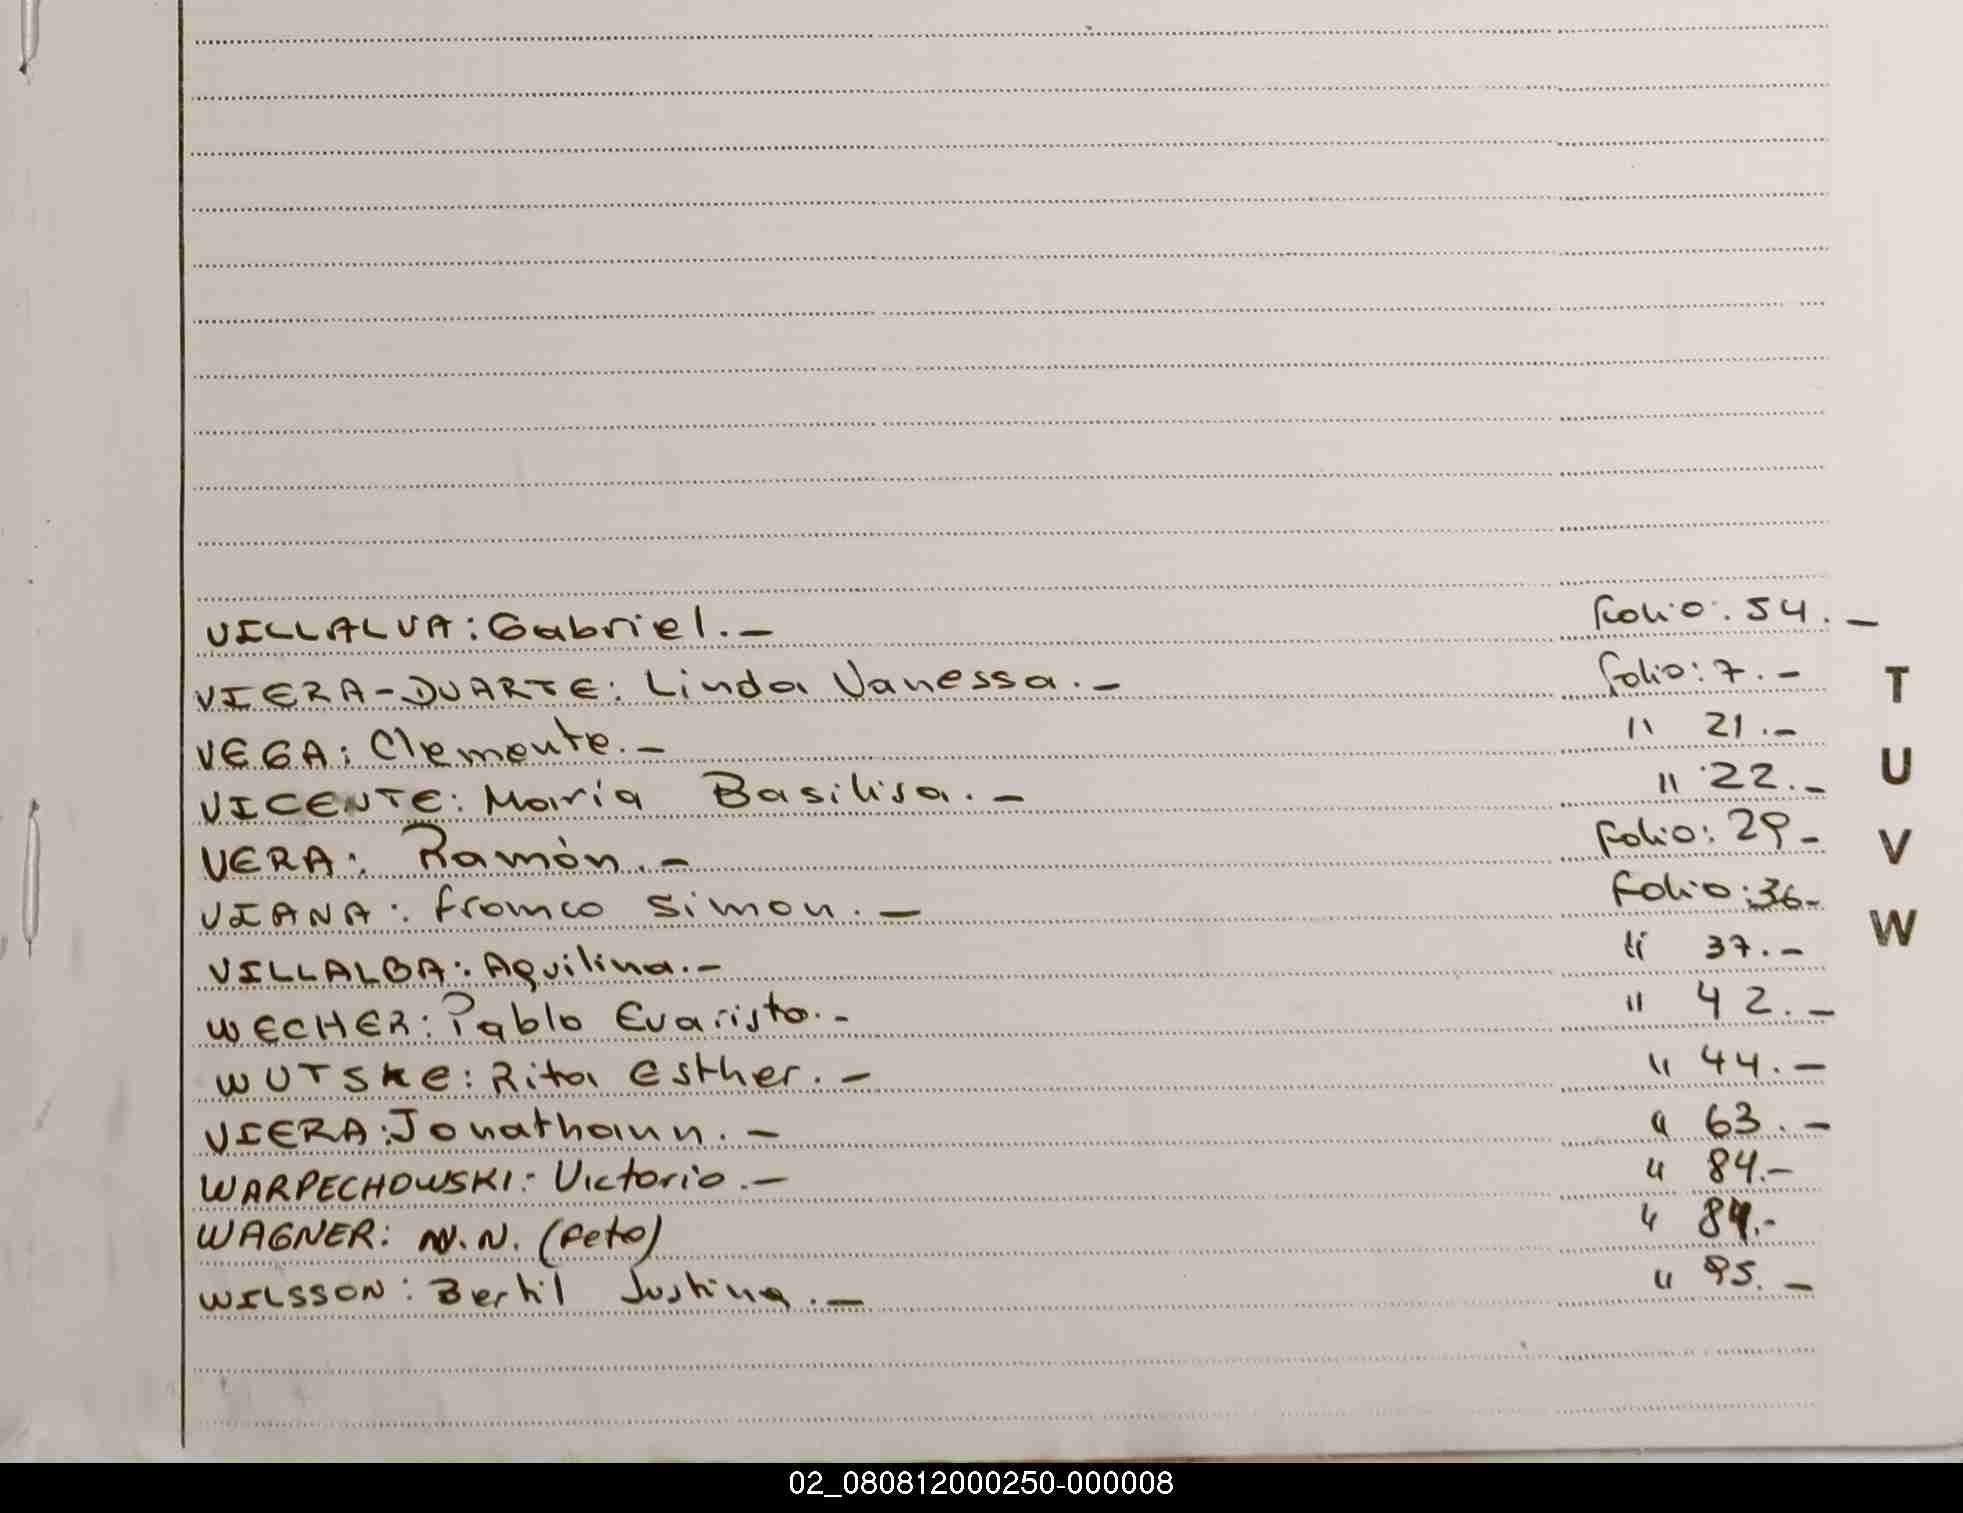 VILLALVA: Gabriel.— folio: 54.—
VIERA-DUARTE: Linda Vanessa.— folio: 7.—
VEGA: Clemente.— " 21.—
VICENTE: María Basilisa.— " 22.—
VERA: Ramón.— folio: 29—
VIANA: franco Simon.— folio: 36—
VILLALBA: Aquilina.— " 37.—
WECHER: Pablo Evaristo.— " 42.—
WUTSKE: Rita Esther.— " 44.—
VIERA: Jonathann.— " 63.—
WARPECHOWSKI: Victorio.— " 84.—
WAGNER: N.N. (feto) " 84.—
WILSSON: Bertil Justina.— " 95.—
T
U
V
W
02_080812000250-000008